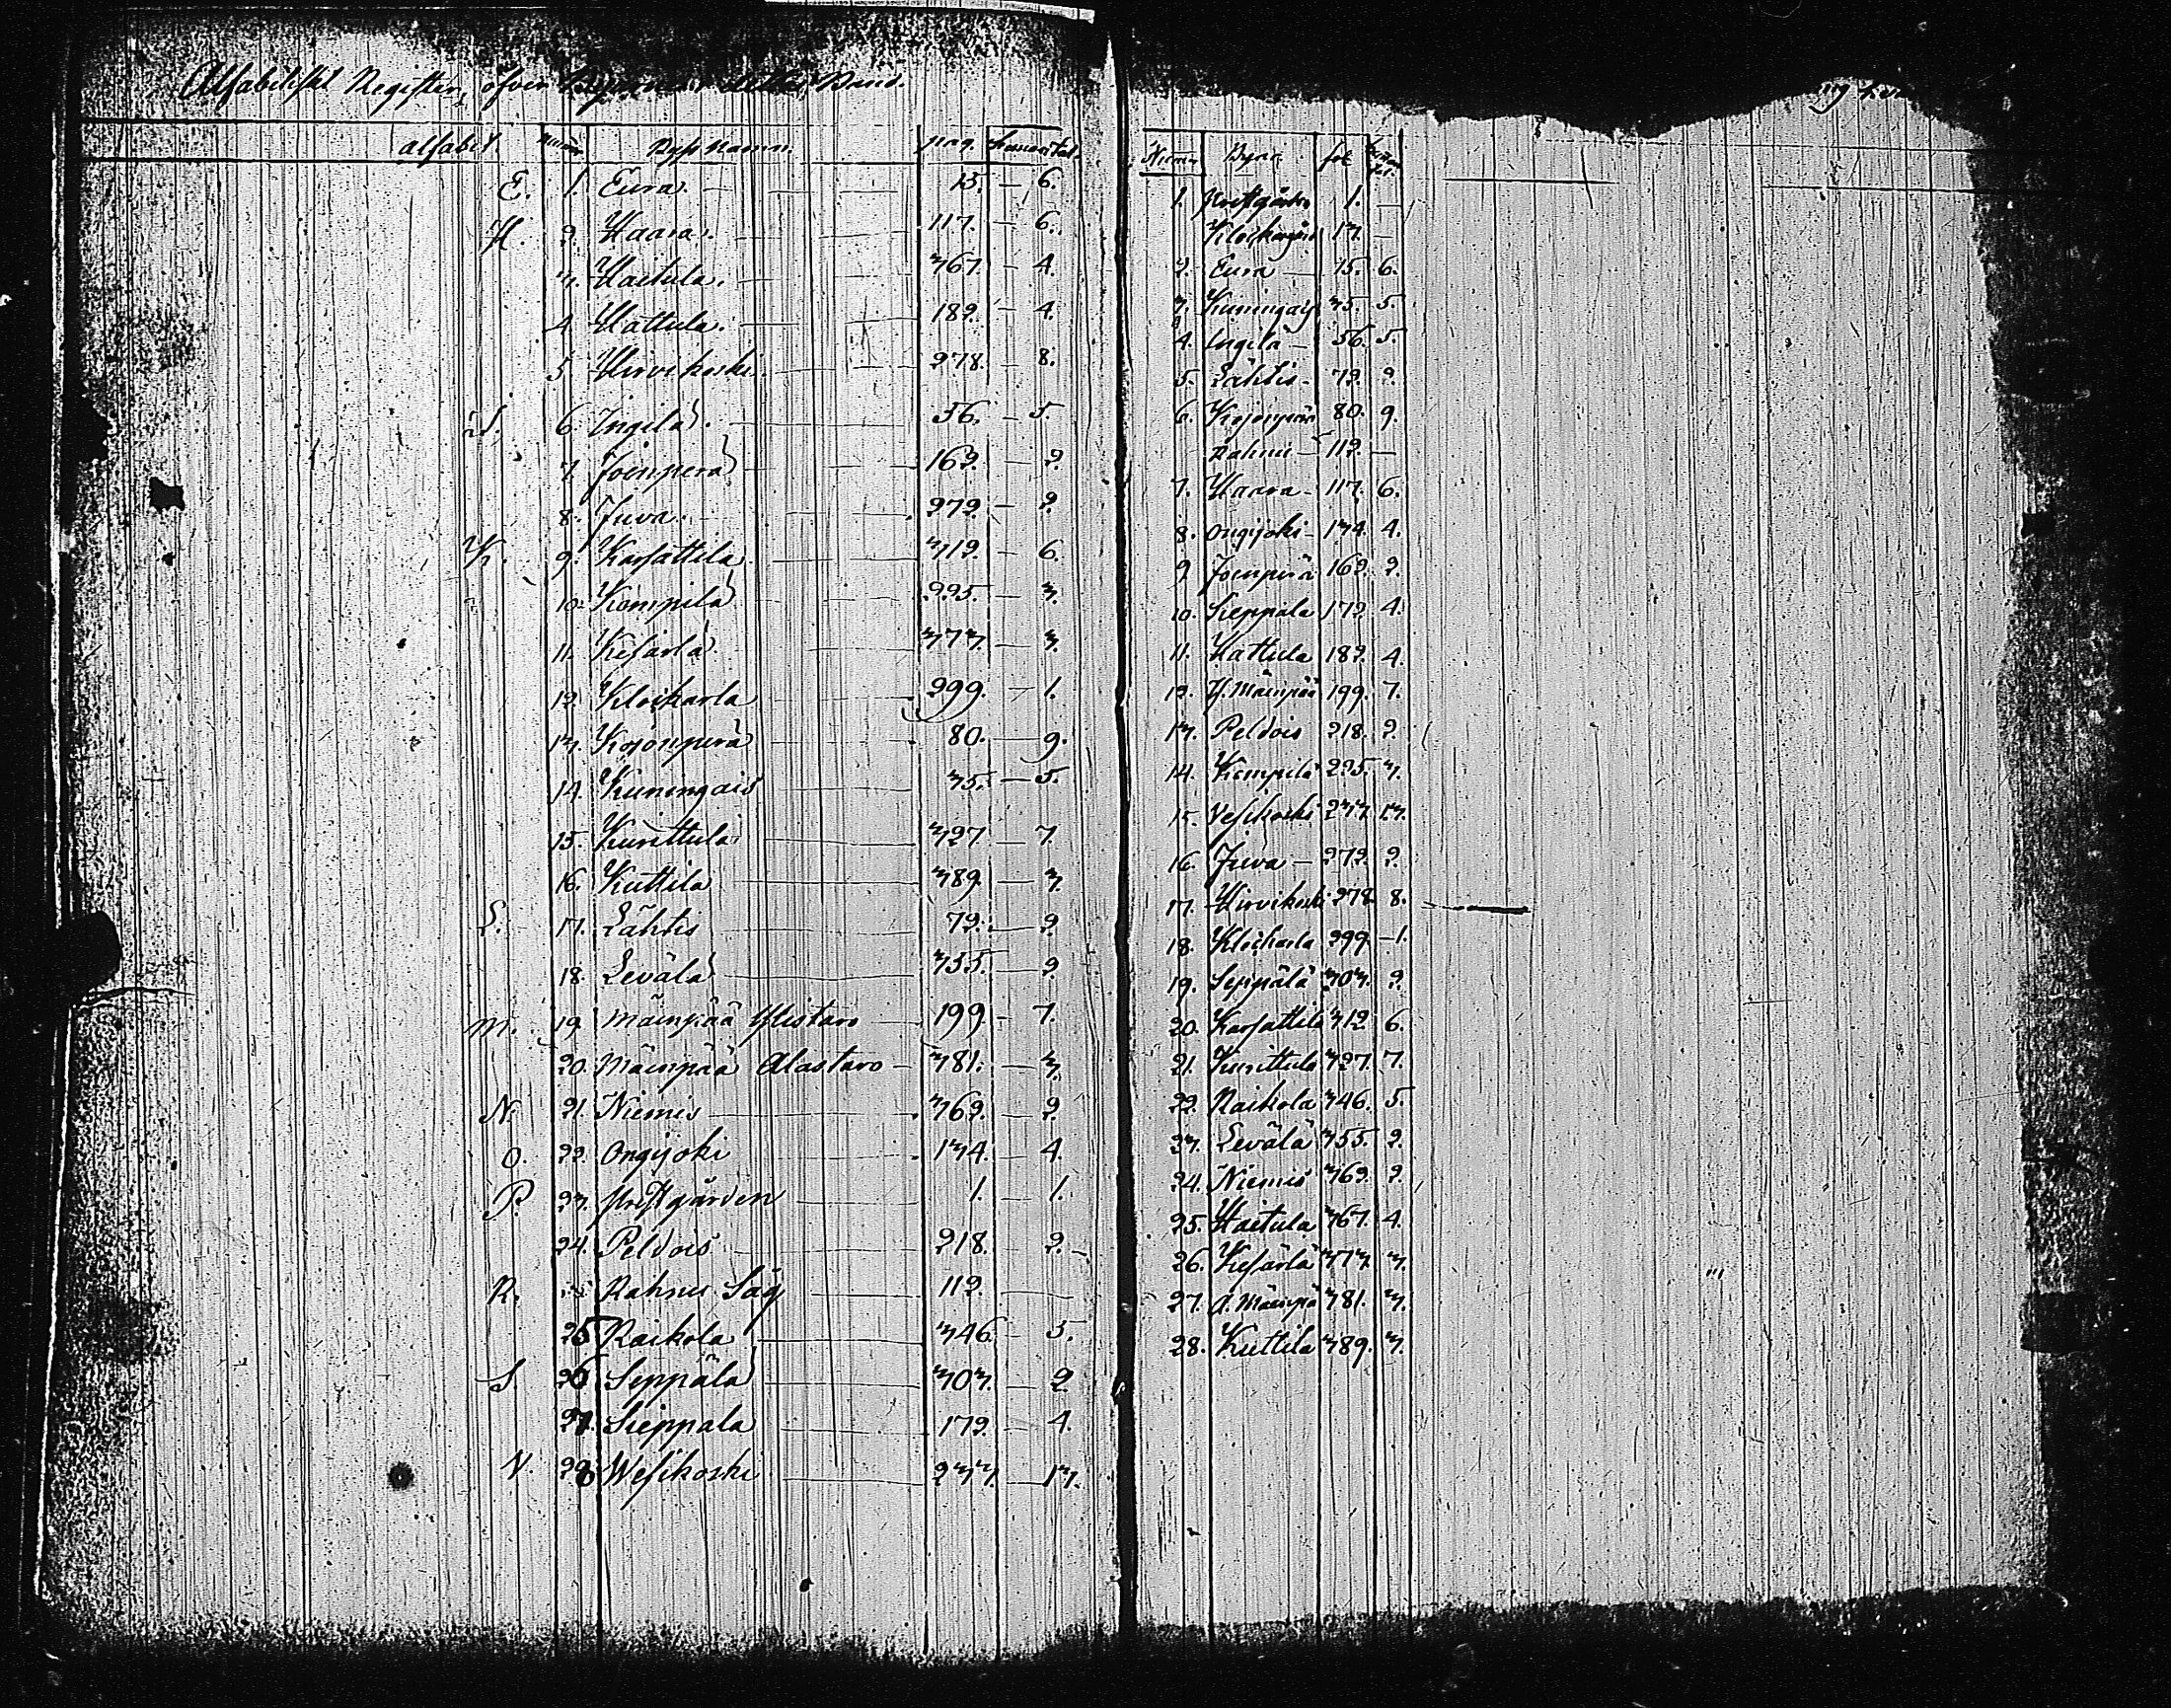 Alfabetiskt Register öfver Byarne i detta Band.
alfabet Num. Bys Namn. pag. Hemantal.
E. 1. Eura. 15. – 6.
H. 2. Haara. 117. – 6.
3. Haitula. 367. – 4.
4. Hattula. 182. – 4.
5. Hirvikoski. 278. – 8.
I. 6. Ingilä. 56. – 5.
7. Joenperä 162. – 2.
8. Juva. 272. – 2.
K. 9. Karsattila 312. – 6.
10. Kompila 225. – 3.
11. Kesärlä 373. – 3.
12. Klockarla 299. – 1.
13. Kojonperä 80. – 9.
14. Kuningais 35. – 5.
15. Kunittula 327. – 7.
16. Kuttila 389. – 3.
L. 17. Lähtis 72. – 2.
18. Levälä 355. – 2.
M. 19. Mäenpää Ylistaro 199. – 7.
20. Mäenpää Alastaro 381. – 3.
N. 21. Niemis 362. – 2.
O. 22. Ongijoki 134. – 4.
P. 23. Prestgården 1. – 1.
24. Peldois 218. – 2.
R. Rahnu Såg 112.
25 Raikola 346. – 5.
S 26 Seppälä 303. – 2
27. Sieppala 172. – 4.
V. 28 Wesikoski 233. – 13.
Num. Byar fol
1. Prestgården 1. –
Klockargård 13. –
2. Eura 15. 6.
3. Kuningais 35. 5.
4. Ingilä 56. 5.
5. Lähtis 72. 2.
6. Kojonperä 80. 9.
Rahnu 112. –
7. Haara 117. 6.
8. Ongijoki 134. 4.
9. Joenperä 162. 2.
10. Sieppala 172. 4.
11. Hattula 182. 4.
12. Y. Mäenpää 199. 7.
13. Peldois 218. 2.
14. Kompila 225. 3.
15. Vesikoski 233. 13.
16. Juva 272. 2.
17. Hirvikoski 278. 8.
18. Klockarla 299. 1.
19. Seppälä 303. 2
20. Karsattila 312. 6.
21. Kunittula 327. 7.
22. Raikola 346. 5.
23. Levälä 355. 2.
24. Niemis 362. 2.
25. Haitula 367. 4.
26. Kesärlä 373. 3.
27. A. Mäenpä 381. 3.
28. Kuttila 389. 3.